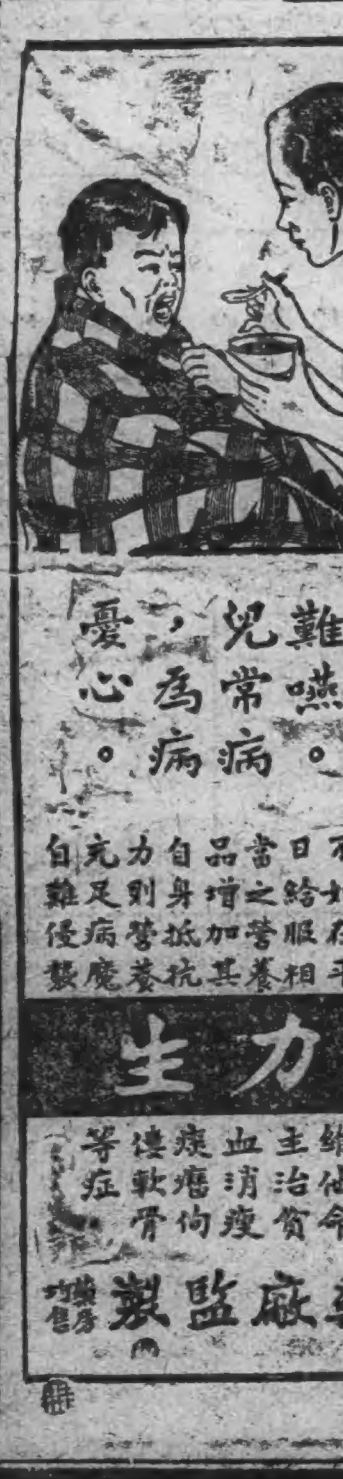 難嚥。
兒常病
，為病
憂心。
日給服相
當之營養
品增加其
自身抵抗
力則營養
充足病魔
自難侵襲
力生
維他命
主治貧
血消瘦
佝
僂軟骨
等症
廠監製
藥房
均售